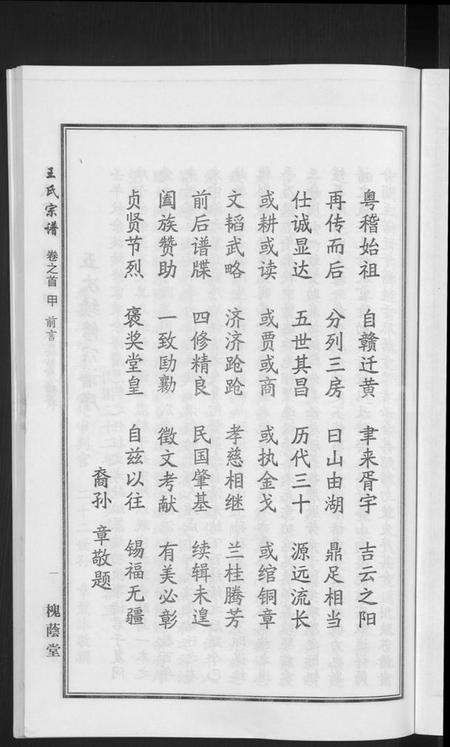 粤稽始祖 自赣迁黄 聿来胥宇 吉云之阳
再传而后 分列三房 曰山由湖 鼎足相当
仕诚显达 五世其昌 历代三十 源远流长
或耕或读 或贾或商 或执金戈 或绾铜章
文韬武略 济济跄跄 孝慈相继 兰桂腾芳
前后谱牒 四修精良 民国肇基 续辑未遑
阖族赞助 一致劻勷 徵文考献 有美必彰
贞贤节烈 褒奖堂皇 自兹以往 锡福无疆
裔孙 章敬题
王氏宗谱 卷之首 甲 前言
一 槐荫堂